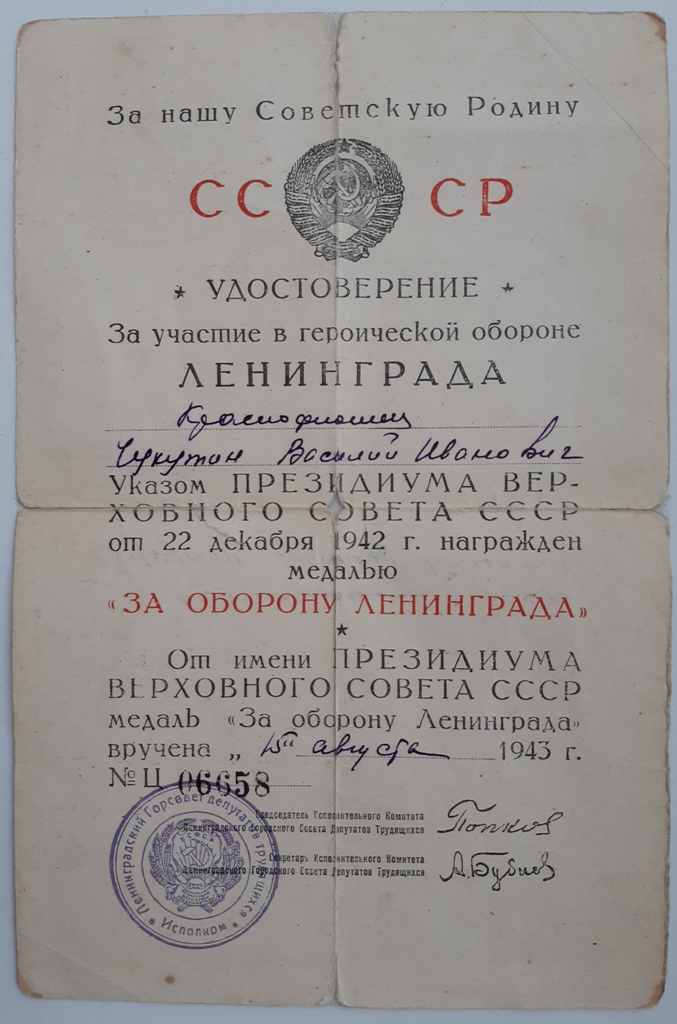 За нашу Советскую Родину
СС СР
* УДОСТОВЕРЕНИЕ *
За участие в героической обороне
ЛЕНИНГРАДА
Краснофлотец
Чукутин Василий Иванович
Указом ПРЕЗИДИУМА ВЕР-
ХОВНОГО СОВЕТА СССР
от 22 декабря 1942 г. награжден
медалью
«ЗА ОБОРОНУ ЛЕНИНГРАДА»
*
От имени ПРЕЗИДИУМА
ВЕРХОВНОГО СОВЕТА СССР
медаль «За оборону Ленинграда»
вручена „15" августа 1943 г.
№ Ц 06658
Председатель Исполнительного Комитета
Ленинградского Городского Совета Депутатов Трудящихся
Попков
Секретарь Исполнительного Комитета
Ленинградского Городского Совета Депутатов Трудящихся
А. Бубнов
Ленинградский Горсовет депутатов трудящихся
* Исполком *
РСФСР